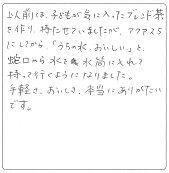 以前は、子どもが気に入ったブレンド茶
を作り、持たせていましたが、アクアス5
にしてから、「うちの水、おいしい」と、
蛇口から水を水筒に入れて
持って行くようになりました。
手軽さ、おいしさ、本当にありがたい
です。